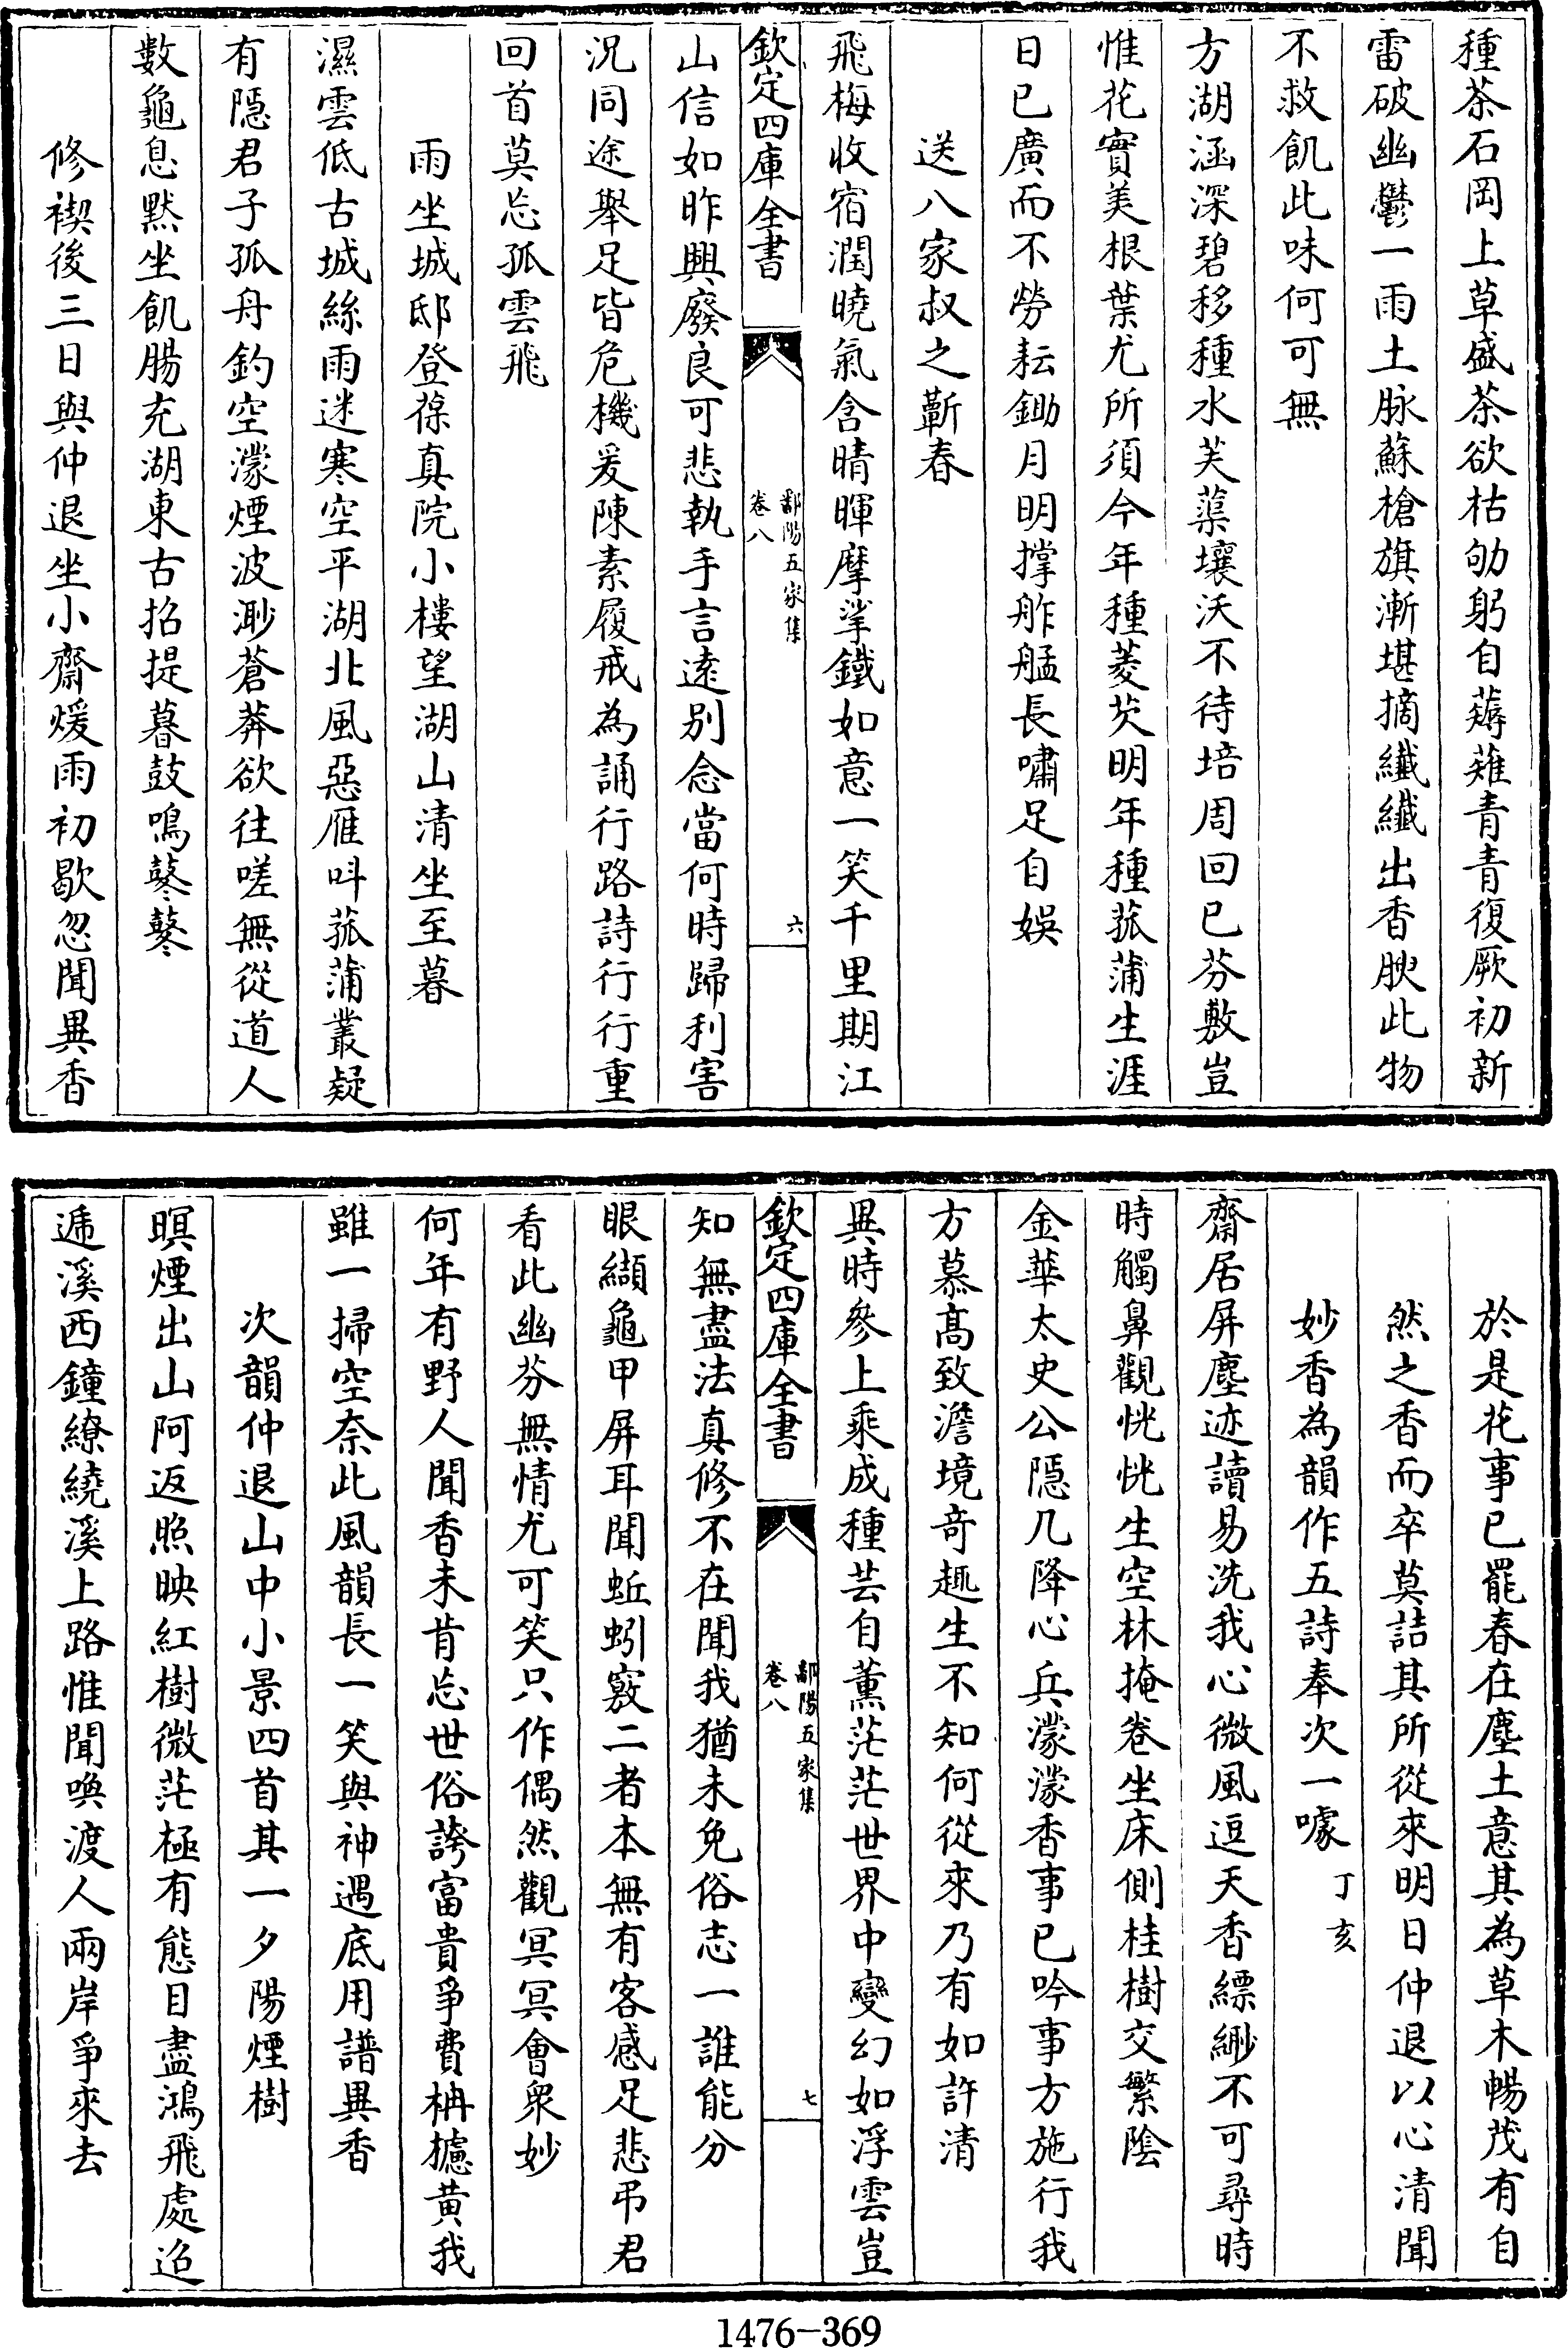 種茶石岡上草盛茶欲枯劬躬自薅薙青青復厥初新
雷破幽鬱一雨土脉蘇槍旗漸堪摘纖纖出香腴此物
不救飢此味何可無
方湖涵深碧移種水芙蕖壤沃不待培周回已芬敷豈
惟花實美根葉尤所須今年種菱芡明年種菰蒲生涯
日已廣而不勞耘鋤月明撑舴艋長嘯足自娱
送八家叔之蘄春
飛梅收宿潤曉氣含晴暉摩挲鐵如意一笑千里期江
欽定四庫全書
鄱陽五家集
卷八
六
山信如昨興廢良可悲執手言逺别念當何時歸利害
況同途舉足皆危機爰陳素履戒為誦行路詩行行重
回首莫忘孤雲飛
雨坐城邸登葆真院小樓望湖山清坐至暮
濕雲低古城絲雨迷寒空平湖北風惡雁呌菰蒲叢疑
有隠君子孤舟釣空濛煙波渺蒼莽欲往嗟無從道人
數龜息黙坐飢腸充湖東古招提暮鼓鳴鼕鼕
修禊後三日與仲退坐小齋煖雨初歇忽聞異香
於是花事已罷春在塵土意其為草木暢茂有自
然之香而卒莫詰其所從來明日仲退以心清聞
妙香為韻作五詩奉次一噱 丁亥
齋居屏塵迹讀易洗我心微風逗天香縹緲不可尋時
時觸鼻觀恍恍生空林掩卷坐床側桂樹交繁陰
金華太史公隠几降心兵濛濛香事已吟事方施行我
方慕髙致澹境竒趣生不知何從來乃有如許清
異時參上乘成種芸自薰茫茫世界中變幻如浮雲豈
欽定四庫全書
鄱陽五家集
卷八
七
知無盡法真修不在聞我猶未免俗志一誰能分
眼纈龜甲屏耳聞蚯蚓竅二者本無有客感足悲弔君
看此幽芬無情尤可笑只作偶然觀冥冥會衆妙
何年有野人聞香未肯忘世俗誇富貴爭費枏櫨黄我
雖一掃空奈此風韻長一笑與神遇底用譜異香
次韻仲退山中小景四首其一夕陽煙樹
暝煙出山阿返照映紅樹微茫極有態目盡鴻飛處迢
遞溪西鐘繚繞溪上路惟聞喚渡人兩岸爭來去
1476-369